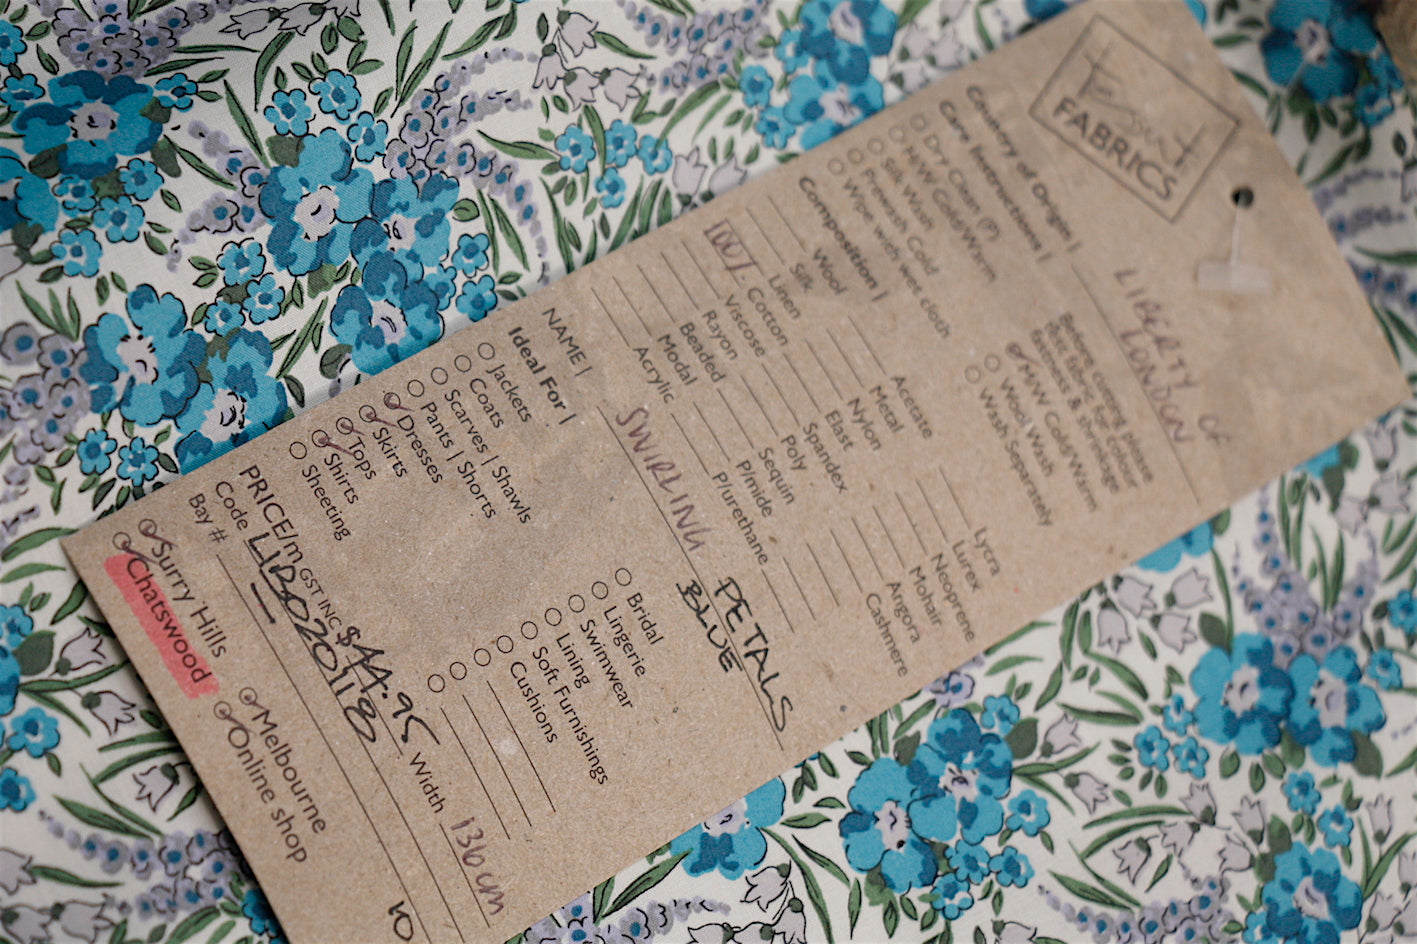 Tessuti
FABRICS
Country of Origin |
LIBERTY OF
LONDON
Care Instructions |
Before cutting please
test fabric for colour
fastness & shrinkage
Dry Clean (P)
H/W Cold/Warm
Silk Wash
Prewash Cold
Wipe with wet cloth
M/W Cold/Warm
Wool Wash
Wash Separately
Composition |
Wool
Silk
Linen
100% Cotton
Viscose
Rayon
Beaded
Modal
Acrylic
Acetate
Metal
Nylon
Elast
Spandex
Poly
Sequin
P/mide
P/urethane
Lycra
Lurex
Neoprene
Mohair
Angora
Cashmere
NAME | SWIRLING PETALS
BLUE
Ideal For |
Jackets
Coats
Scarves | Shawls
Pants | Shorts
Dresses
Skirts
Tops
Shirts
Sheeting
Bridal
Lingerie
Swimwear
Lining
Soft Furnishings
Cushions
PRICE/m GST INC $44.95 Width 136cm
Code LIB020118
Bay #
Surry Hills
Chatswood
Melbourne
Online shop